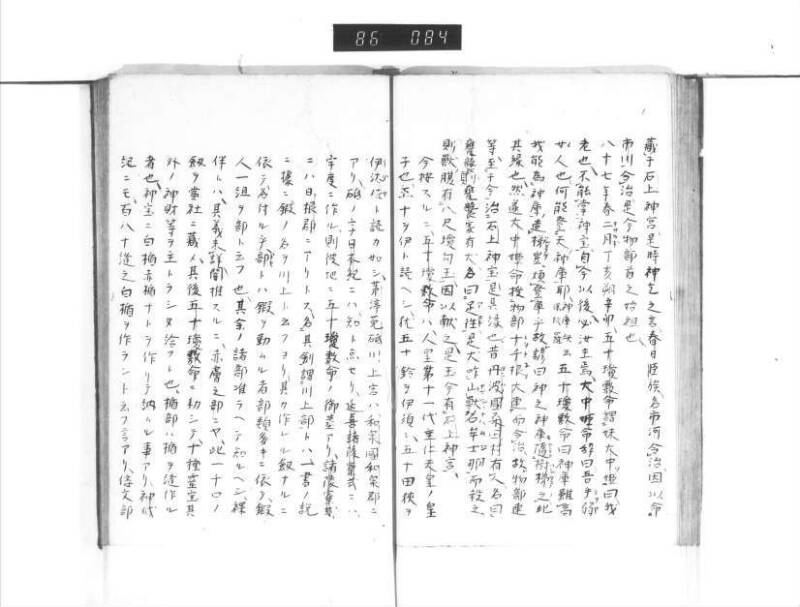 86 084
蔵于石上神宮是時神乞之言春日臣族名市河令治因以命
市川令治是今物部首之始祖也
八十七年春二月丁亥朔辛卯五十瓊敷命謂妹大中姫曰我
老也不能掌神宝自今以後必汝主焉大中姫命辞曰吾手弱
女人也何能登天神庫耶五十瓊敷命曰神庫雖高
我能為神庫造梯豈煩登庫乎故諺曰神之神庫随樹梯之此
其縁也然遂大中姫命授物部十千根大連而令治故物部連
等至于今治石上神宝是其縁也昔丹波国桑田村有人名曰
甕襲則甕襲家有犬名曰足往是犬咋山獣名牟士那而殺之
則獣腹有八尺瓊勾玉因以献之是玉今有石上神宮
今按スルニ五十瓊敷命ハ人皇第十一代垂仁天皇ノ皇
子也五十ヲ伊ト読ヘシ
伊ト読カ如シ茅渟菟砥川上宮ハ和泉国和泉郡ニ
アリ砥ノ字日本紀ニハ知ト点セリ延喜諸陵式ニハ
宇度ニ作ル則彼地ニ五十瓊敷命ノ御墓アリ諸陵式
ニハ日根郡ニアリトス名其剣謂川上部トハ一書ノ説
ニ據ニ鍛ノ名ヲ川上ト云フヨリ其カ作レル剣ナルニ
依テ名付ルナ部トハ鍛ヲ勤ムル者部類多キニ依テ鍛
人一組ヲ部ト云フ也其余ノ諸部准ラヘテ知ルヘシ裸
伴トハ其義未詳関推スルニ赤膚之部ニヤ此一千口ノ
剣ヲ当社ニ蔵ム其後五十瓊敷命ニ初シテ十種霊宝其
外ノ神財等ヲ主トラシメ給フト也楯部ハ楯ヲ造作ル
者也神宝ニ白楯赤楯ナトヲ作リテ納ルル事アリ神代
記ニモ百八十縫之白楯ヲ作ラント云フ言アリ倭文部